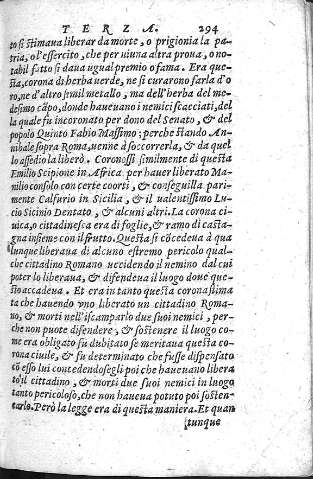 TERZA. 294
to si stimaua liberar da morte, o prigionia la pa-
tria, o l'essercito, che per niuna altra proua, o no-
tabil fatto si daua ugual premio o fama. Era que-
sta, corona di herba uerde, ne si curarono farla d'o
ro, ne d'altro simil metallo, ma dell'herba del me-
desimo cāpo, donde haueuano i nemici scacciati, del
la quale fu incoronato per dono del Senato, & del
popolo Quinto Fabio Massimo; perche stando An-
nibale sopra Roma, uenne à soccorrerla, & da quel
lo assedio la liberò. Coronossi similmente di questa
Emilio Scipione in Africa per hauer liberato Ma-
nilio consolo con certe coorti, & conseguilla pari-
mente Calfurio in Sicilia, & il ualentissimo Lu-
cio Sicinio Dentato, & alcuni altri. La corona ci-
uica, o cittadinesca era di foglie, & ramo di casta-
gna insieme con il frutto. Questa si cōcedeua à qua
lunque liberaua di alcuno estremo pericolo qual-
che cittadino Romano uccidendo il nemino dal cui
poter lo liberaua, & difendeua il luogo doue que-
sto accadeua. Et era in tanto questa corona stima
ta che hauendo vno liberato un cittadino Roma-
no, & morti nell'iscamparlo due suoi nemici, per-
che non puote difendere, & sostenere il luogo co-
me era obligato fu dubitato se meritaua questa co-
rona ciuile, & fu determinato che fusse dispensato
cō esso lui concedendosegli poi che haueuano libera
to il cittadino, & morti due suoi nemici in luogo
tanto pericoloso, che non haueua potuto poi sosten-
tarlo. Però la legge era di questa maniera. Et quan
tunque